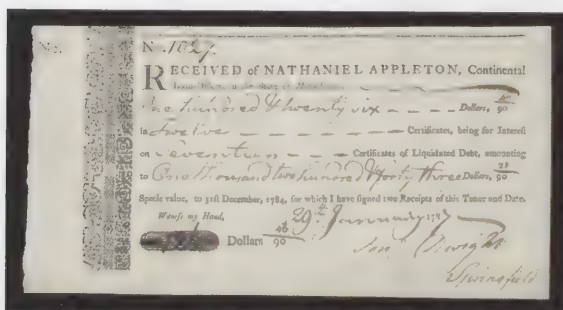 No.
No. 1027
RECEIVED of NATHANIEL APPLETON, Continental
Loan-Officer, in the State of
One hundred & twenty six — — — Dollars, /90
in twelve — — — — — Certificates, being for Interest
on seventeen — — — Certificates of Liquidated Debt, amounting
to One thousand two hundred & forty three Dollars, /90
Specie value, to 31st December, 1784, for which I have signed two Receipts of this Tenor and Date.
Witness my Hand, 29th January 1787
Dollars 46/90
Dwight
Springfield